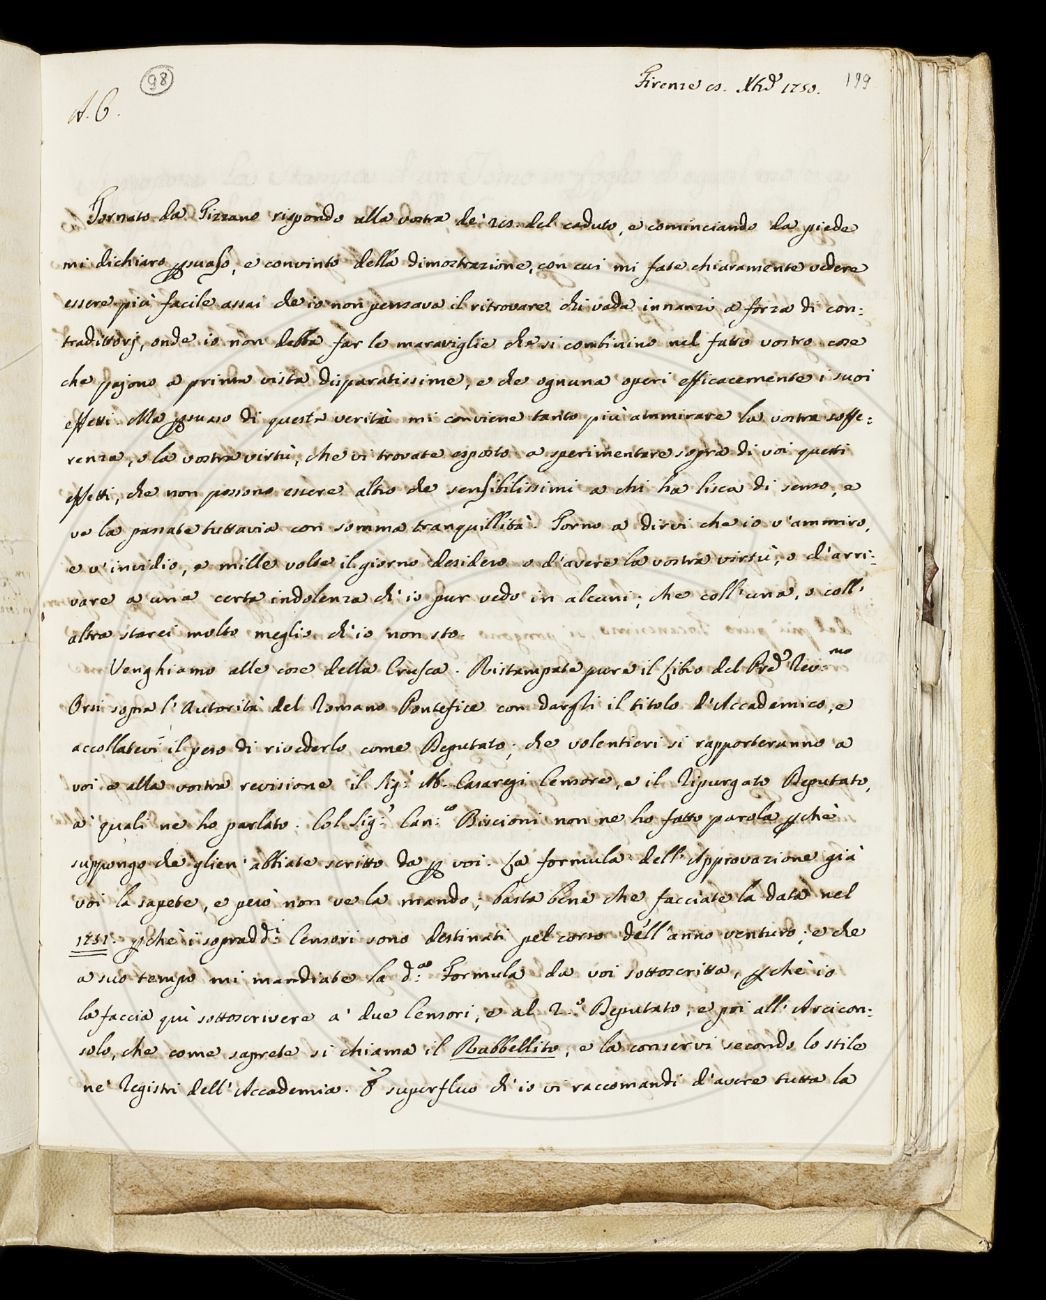 98
Firenze Xbre 1750.
199
A. C.
Tornato da rispondo alla vostra de' 20. del caduto, e cominciando da piede
mi dichiaro psuaso, e convinto della dimostrazione, con cui mi fate chiaramente vedere
essere più facile assai che io non pensava il ritrovare chi vada innanzi a forza di con:
tradittorj, onde io non debba far le maraviglie che si combinino nel fatto vostro cose
che pajono a prima vista disparatissime, e che ognuna operi efficacemente i suoi
effetti. Ma psuaso di questa verità mi conviene tanto più ammirare la vostra soffe:
renza, e la vostra virtù, che vi trovate esposto a sperimentare sopra di voi questi
effetti, che non possono essere altro che sensibilissimi a chi ha lisca di senso, e
ve la passate tuttavia con somma tranquillità. Torno a dirvi che io v'ammiro,
e v'invidio, e mille volte il giorno desidero o d'avere la vostra virtù, o d'arri:
vare a una certa indolenza ch'io pur vedo in alcuni; che coll'una, o coll'
altra starei molto meglio ch'io non sto.
Venghiamo alle cose della Crusca. Ristampate pure il Libro del Pre Rev:mo
Orsi sopra l'Autorità del Romano Pontefice con dargli il titolo d'Accademico, e
accollatevi il peso di rivederlo come Deputato; che volentieri si rapporteranno a
voi e alla vostra revisione il Sig.r Ab. Casaregi Censore, e il Ripurgato Deputato,
a' quali ne ho parlato. Col Sig.r Can:co Biscioni non ne ho fatto parola pchè
suppongo che glien'abbiate scritto da p voi. La formula dell'Approvazione già
voi la sapete, e però non ve la mando; basta bene che facciate la data nel
1751. pchè i sopradd.i Censori sono destinati pel corso dell'anno venturo; e che
a suo tempo mi mandiate la d.a Formula da voi sottoscritta, pchè io
la faccia quì sottoscrivere a' due Censori, e al 2.o Deputato, e poi all'Arcicon:
solo, che come saprete si chiama il Rabbellito, e la conservi secondo lo stile
ne' Registri dell'Accademia. È superfluo ch'io vi raccomandi d'avere tutta la